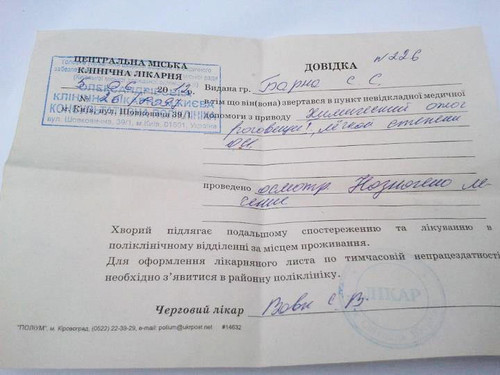 ЦЕНТРАЛЬНА МІСЬКА
КЛІНІЧНА ЛІКАРНЯ
20
№
м. Київ, вул. Шовковична 39/1
ДОВІДКА
№226
Видана гр. Барна Є. С.
в тім що він(вона) звертався в пункт невідкладної медичної
допомоги з приводу Химический ожог
роговицы, лёгкой степени
проведено осмотр Назначено ле-
чение
Хворий підлягає подальшому спостереженню та лікуванню в
поліклінічному відділенні за місцем проживання.
Для оформлення лікарняного листа по тимчасовій непрацездатності
необхідно з'явитися в районну поліклініку.
Черговий лікар
ЛІКАР
"ПОЛІУМ", м. Кіровоград, (0522) 22-39-29, e-mail: polium@ukrpost.net #14632